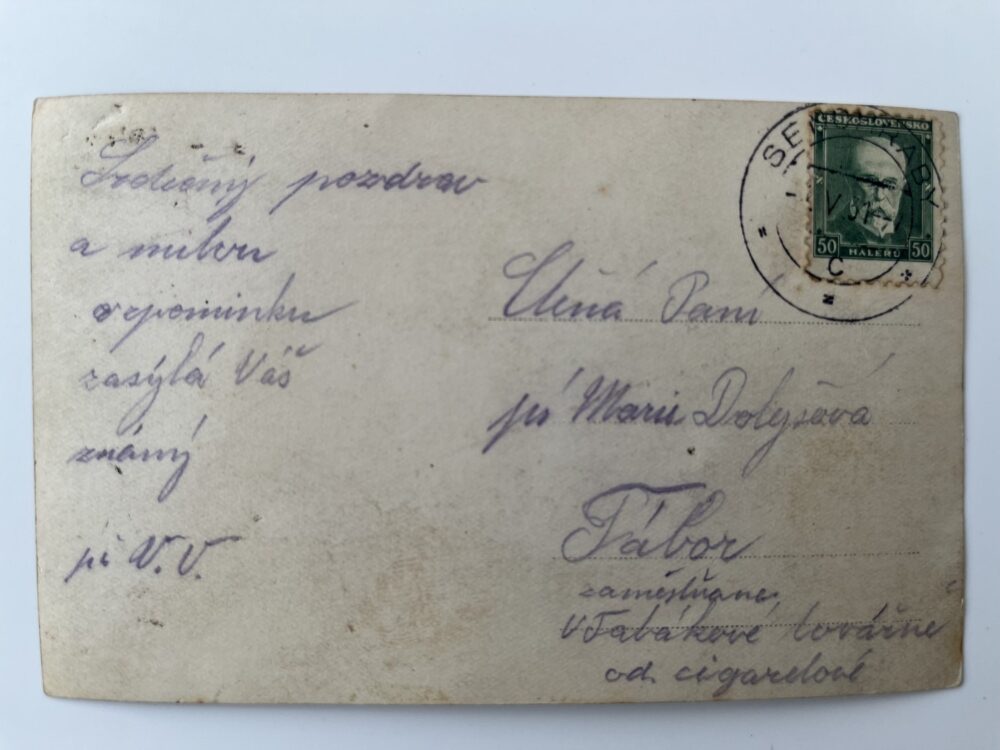 Srdečný pozdrav
a milou
vzpomínku
zasýlá Váš
známý
pí V. V.
ČESKOSLOVENSKO
50 HALÉŘŮ 50
V 31
C
Ctěná Paní
pí Marie Dolejšová
Tábor
zaměstňane
v Tabákové továrne
od cigaretové